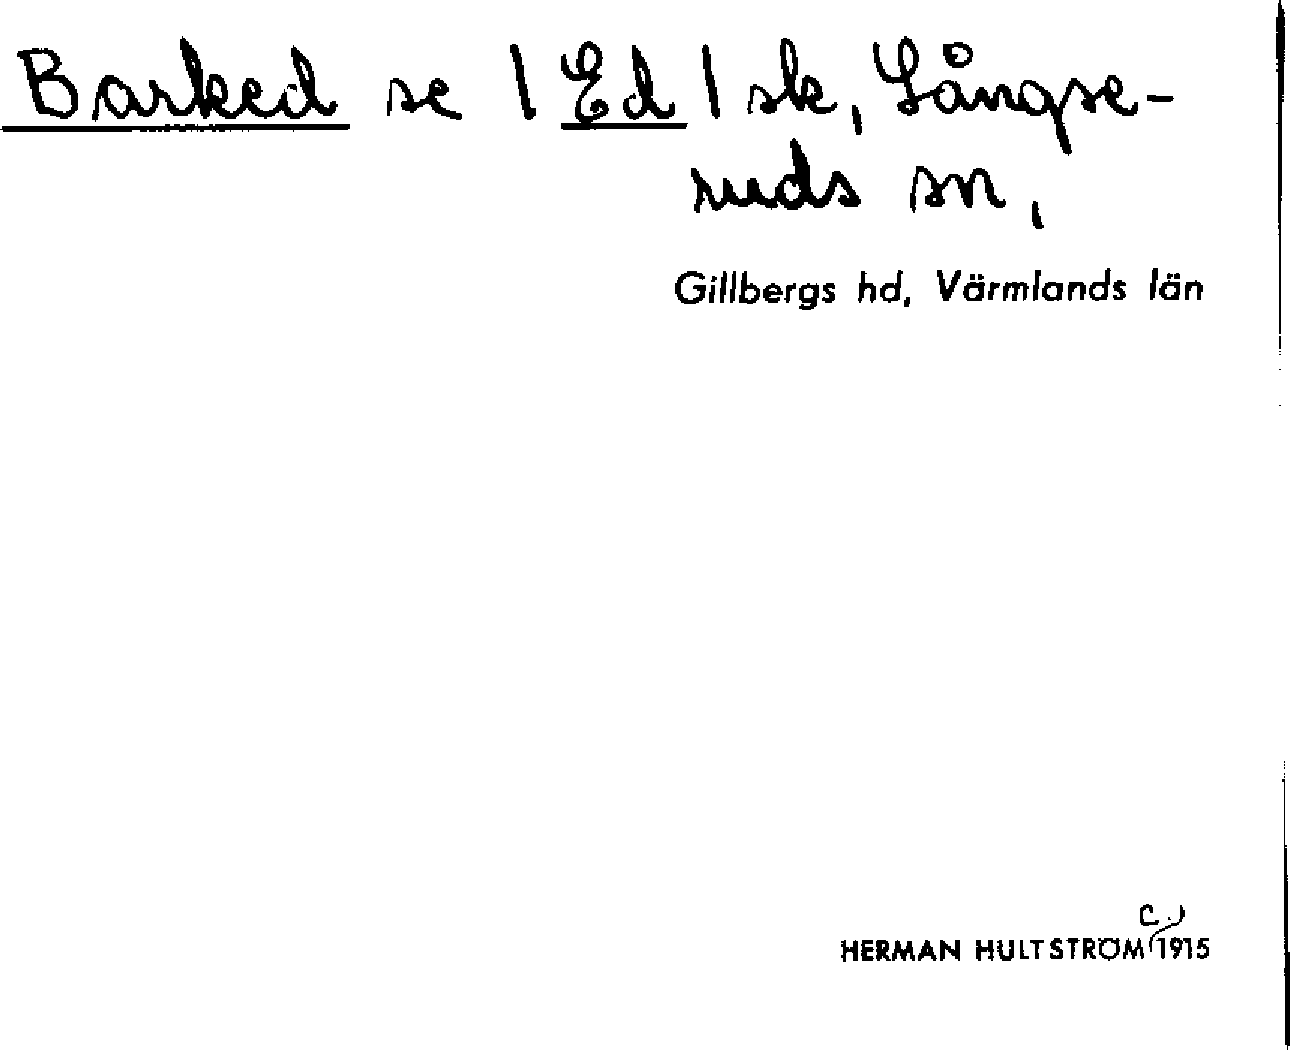 Barked se | Ed | sk, Långse-
ruds sn,
Gillbergs hd, Värmlands län
C.
HERMAN HULTSTRÖM 1915